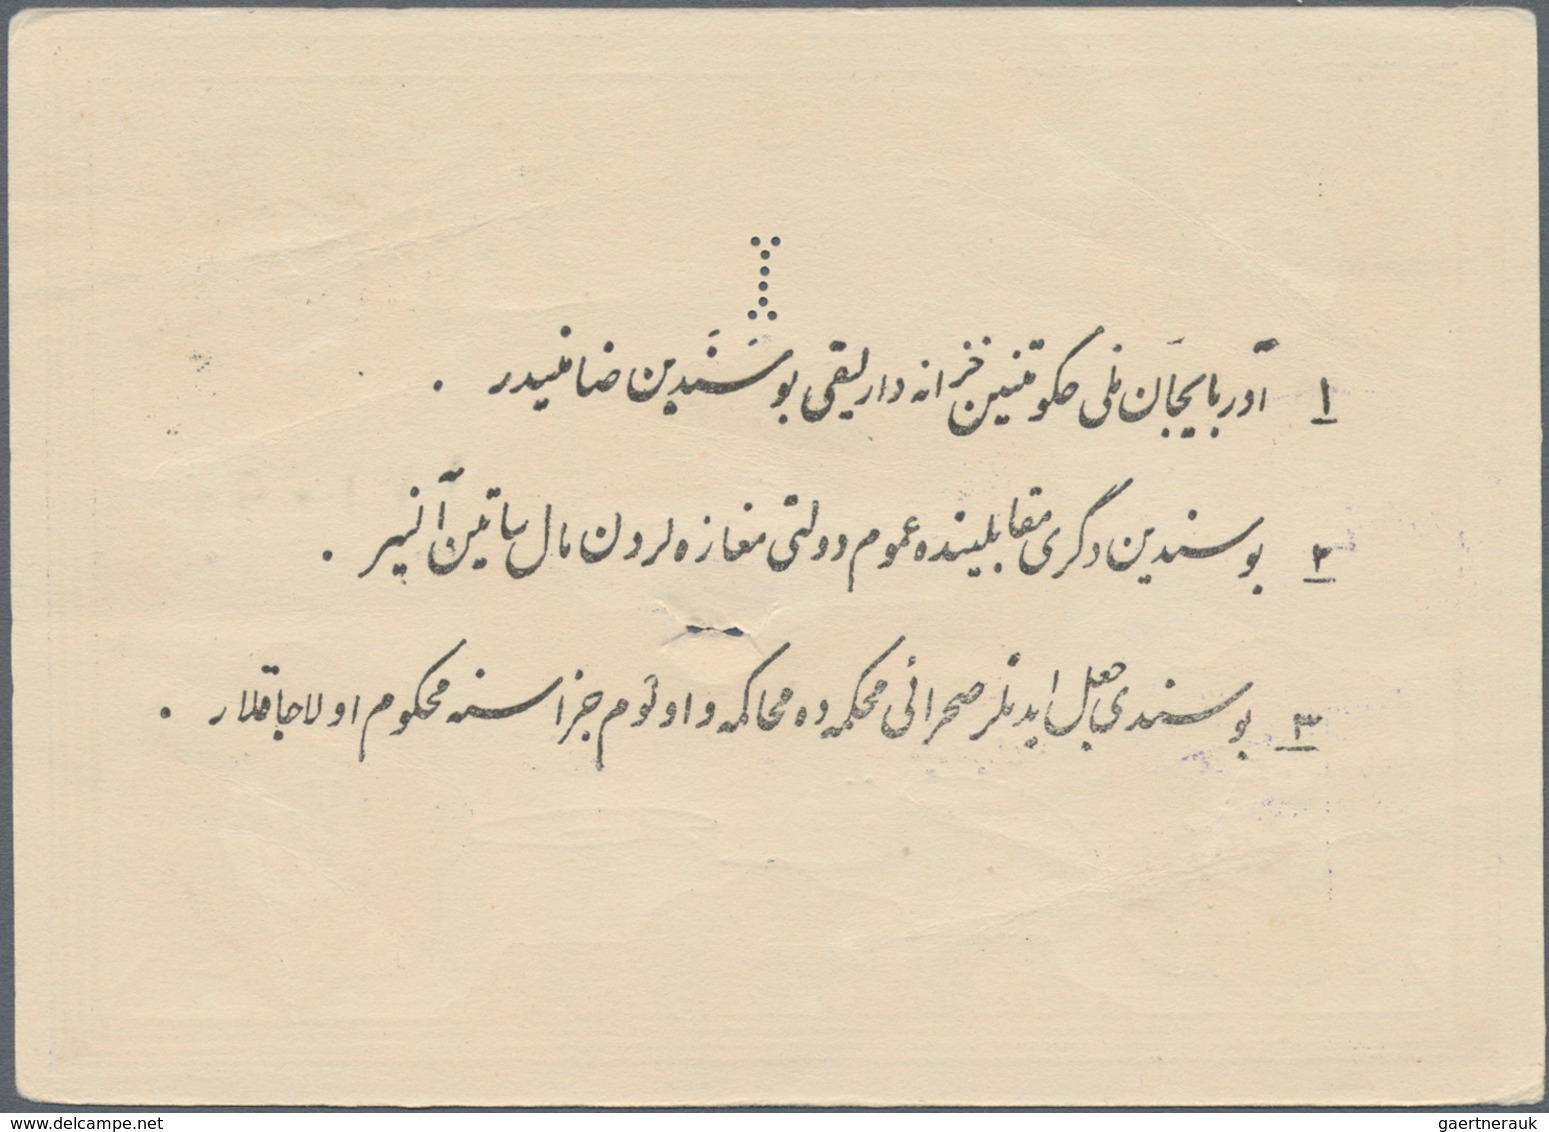 ۱ آذربایجان ملی حکومتنین خزانه دارلیقی بو سَنَدین ضامنیدر .
۲ بو سندین دگری مقابلینده عموم دولتی مغازه لردن مال ساتین آلنیر .
۳ بو سندی جعل ایدنلر صحرائی محکمه ده محاکمه و اولوم جزاسنه محکوم اولاجاقلار .
delcampe.net
gaertnerauk